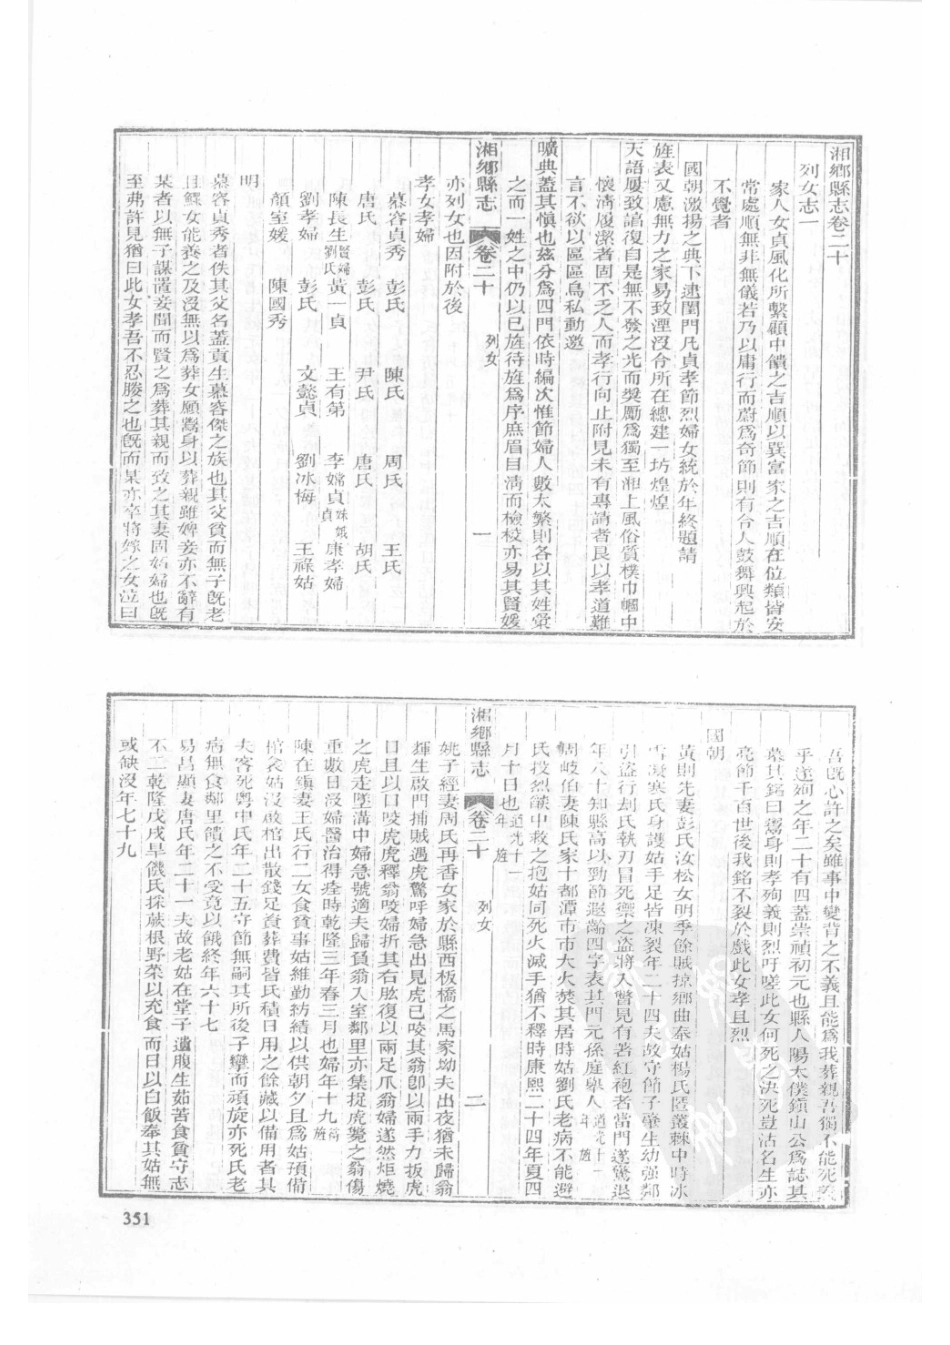 湘鄉縣志卷二十
列女志一
家人女貞風化所繫顧中饋之吉順以巽富家之吉順在位類皆安
常處順無非無儀若乃以庸行而蔚爲奇節則有令人鼓舞興起於
不覺者
國朝激揚之典下逮閨門凡貞孝節烈婦女統於年終題請
旌表又慮無力之家易致湮沒令所在總建一坊煌煌
天語屢致諮復自是無不發之光而獎勵爲獨至湘上風俗質樸巾幗中
懷清履潔者固不乏人而孝行向止附見未有專請者良以孝道難
言不欲以區區烏私動邀
曠典蓋其慎也茲分爲四門依時編次惟節婦人數太繁則各以其姓彙
之而一姓之中仍以已旌待旌爲序庶眉目清而檢校亦易其賢媛
湘鄉縣志 卷二十 列女 一
亦列女也因附於後
孝女孝婦
慕容貞秀 彭氏 陳氏 周氏 王氏
唐氏 彭氏 尹氏 唐氏 胡氏
陳長生賢婦劉氏 黃一貞 王有第 李嫦貞妹娥貞 康孝婦
劉孝婦 彭氏 文懿貞 劉冰梅 王祿姑
顏室媛 陳國秀
明
慕容貞秀者佚其父名蓋貢生慕容傑之族也其父貧而無子旣老
且鰥女能養之及沒無以爲葬女願鬻身以葬親雖婢妾亦不辭有
某者以無子謀置妾聞而賢之爲葬其親而致之其妻固妬婦也旣
至弗許見猶曰此女孝吾不忍媵之也旣而某亦卒將嫁之女泣曰
吾旣心許之矣雖事中變背之不義且能爲我葬親吾獨不能死
乎遂殉之年二十有四蓋崇禎初元也縣人陽太僕鎮山公爲誌其
墓其銘曰鬻身則孝殉義則烈吁嗟此女何死之决死豈沽名生亦
亮節千百世後我銘不裂於戲此女孝且烈
國朝
黃則先妻彭氏汝松女明季餘賊掠鄉曲奉姑楊氏匿叢棘中時冰
雪凝寒氏身護姑手足皆凍裂年二十四夫故守節子肇生幼強鄰
引盜行刦氏執刃冒死禦之盜將入瞥見有著紅袍者當門遂驚退
年八十知縣高以勁節遐齡四字表其門元孫庭舉人道光十一年旌
周岐伯妻陳氏家十都潭市市大火焚其居時姑劉氏老病不能避
氏投烈燄中救之抱姑同死火滅手猶不釋時康熙二十四年夏四
月十日也道光十一年旌
湘鄉縣志 卷二十 列女 二
姚子經妻周氏再香女家於縣西板橋之馬家坳夫出夜猶未歸翁
輝生啟門捕賊遇虎驚呼婦急出見虎已咬其翁卽以兩手力扳虎
口且以口咬虎虎釋翁咬婦折其右肱復以兩足爪翁婦遂然炬燒
之虎走墜溝中婦急號適夫歸負翁入室鄰里亦集捉虎斃之翁傷
重數日沒婦醫治得痊時乾隆三年春三月也婦年十九
陳在鎮妻王氏行二女食貧事姑維勤紡績以供朝夕且爲姑預備
棺衾姑沒啟棺出散錢足資葬費皆氏積日用之餘藏以備用者其
夫客死粵中氏年二十五守節無嗣其所後子孿而頑旋亦死氏老
病無食鄰里饋之不受竟以餓終年六十七
易昌顯妻唐氏年二十一夫故老姑在堂子遺腹生茹苦食貧守志
不二乾隆戊戌旱饑氏採蕨根野菜以充食而日以白飯奉其姑無
或缺沒年七十九
351